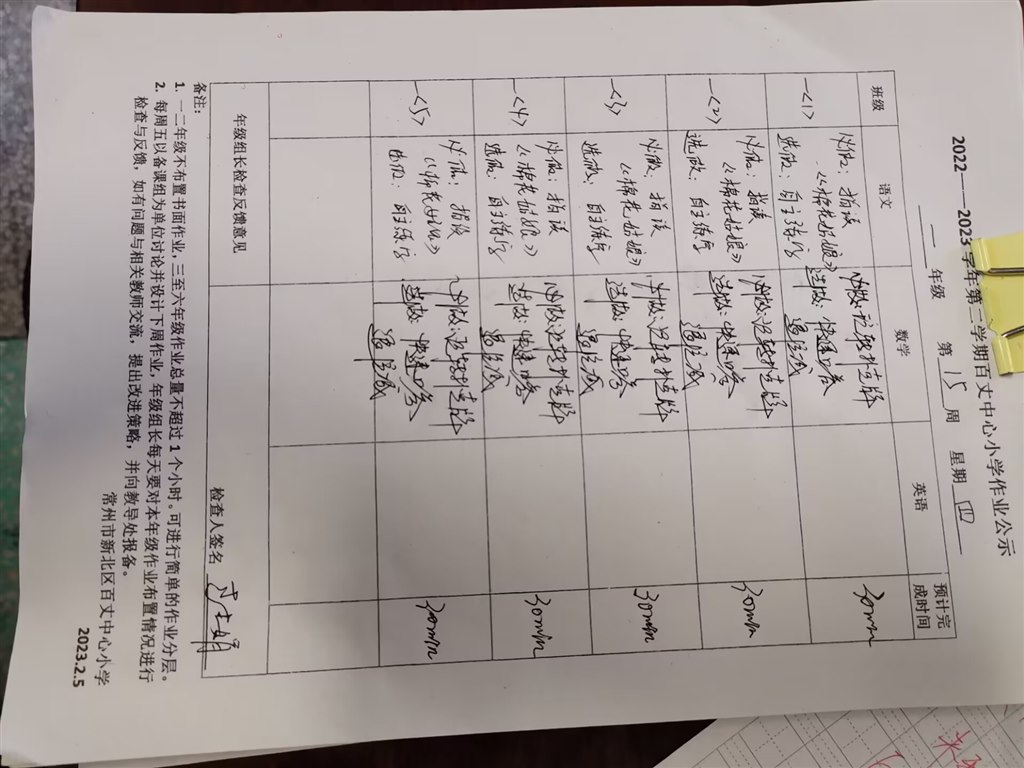 2022——2023学年第二学期百丈中心小学作业公示
一 年级 第 15 周 星期 四
班级 语文 数学 英语 预计完成时间
一<1>
必做：指读
《棉花姑娘》
选做：自主练字
选做：快速口答
30min
一<2>
必做：指读
《棉花姑娘》
选做：自主练字
选做：快速口答
30min
一<3>
必做：指读
《棉花姑娘》
选做：自主练字
选做：快速口答
30min
一<4>
必做：指读
《棉花姑娘》
选做：自主练字
选做：快速口答
30min
一<5>
必做：指读
《棉花姑娘》
选做：自主练字
选做：快速口答
30min
年级组长检查反馈意见
检查人签名
备注：
1. 一二年级不布置书面作业，三至六年级作业总量不超过 1 个小时。可进行简单的作业分层。
2. 每周五以备课组为单位讨论并设计下周作业，年级组长每天要对本年级作业布置情况进行
检查与反馈，如有问题与相关教师交流，提出改进策略，并向教导处报备。
常州市新北区百丈中心小学
2023.2.5